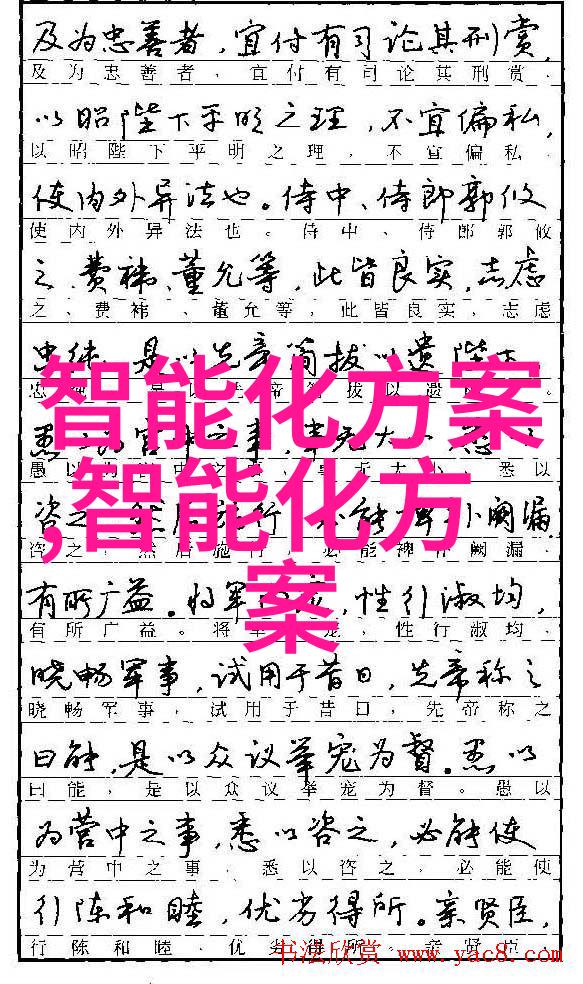 及为忠善者，宜付有司论其刑赏，
及为忠善者，宜付有司论其刑赏，
以昭陛下平明之理，不宜偏私，
以昭陛下平明之理，不宜偏私，
使内外异法也。侍中、侍郎郭攸
使内外异法也。侍中、侍郎郭攸
之、费袆、董允等，此皆良实，志虑
之、费袆、董允等，此皆良实，志虑
忠纯，是以先帝简拔以遗陛下
智能化方案
,智能化方
案
咨之，然后施行，必能裨补阙漏，
咨之，然后施行，必能裨补阙漏，
有所广益。将军，性行淑均，
有所广益。将军宠，性行淑均，
晓畅军事，试用于昔日，先帝称之
晓畅军事，试用于昔日，先帝称之
曰能，是以众议举宠为督。愚以
曰能，是以众议举宠为督。愚以
为营中之事，悉以咨之，必能使
为营中之事，悉以咨之，必能使
行陈和睦，优劣得所。亲贤臣，
行陈和睦，优劣得所。亲贤臣，
书法欣赏 www.yac8.com